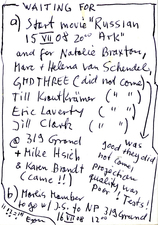 WAITING FOR
a) Start movie "Russian
15 VII 08 20:00 Ark"
and for Natalie Braxton,
Marc + Helena van Schendel,
GMDTHREE (did not come)
Till Krautkrämer ( " )
Eric Laverty ( " )
Jill Clark ( " )
@ 319 Grand
+ Mike Hsieh
& Karen Brandt
(came!!)
was
good they did
not come,
projection
quality was
poor! Tests!
b) Morris Member
to go w/ J.S. to NP 319 Grand
16 VII 08 12:00